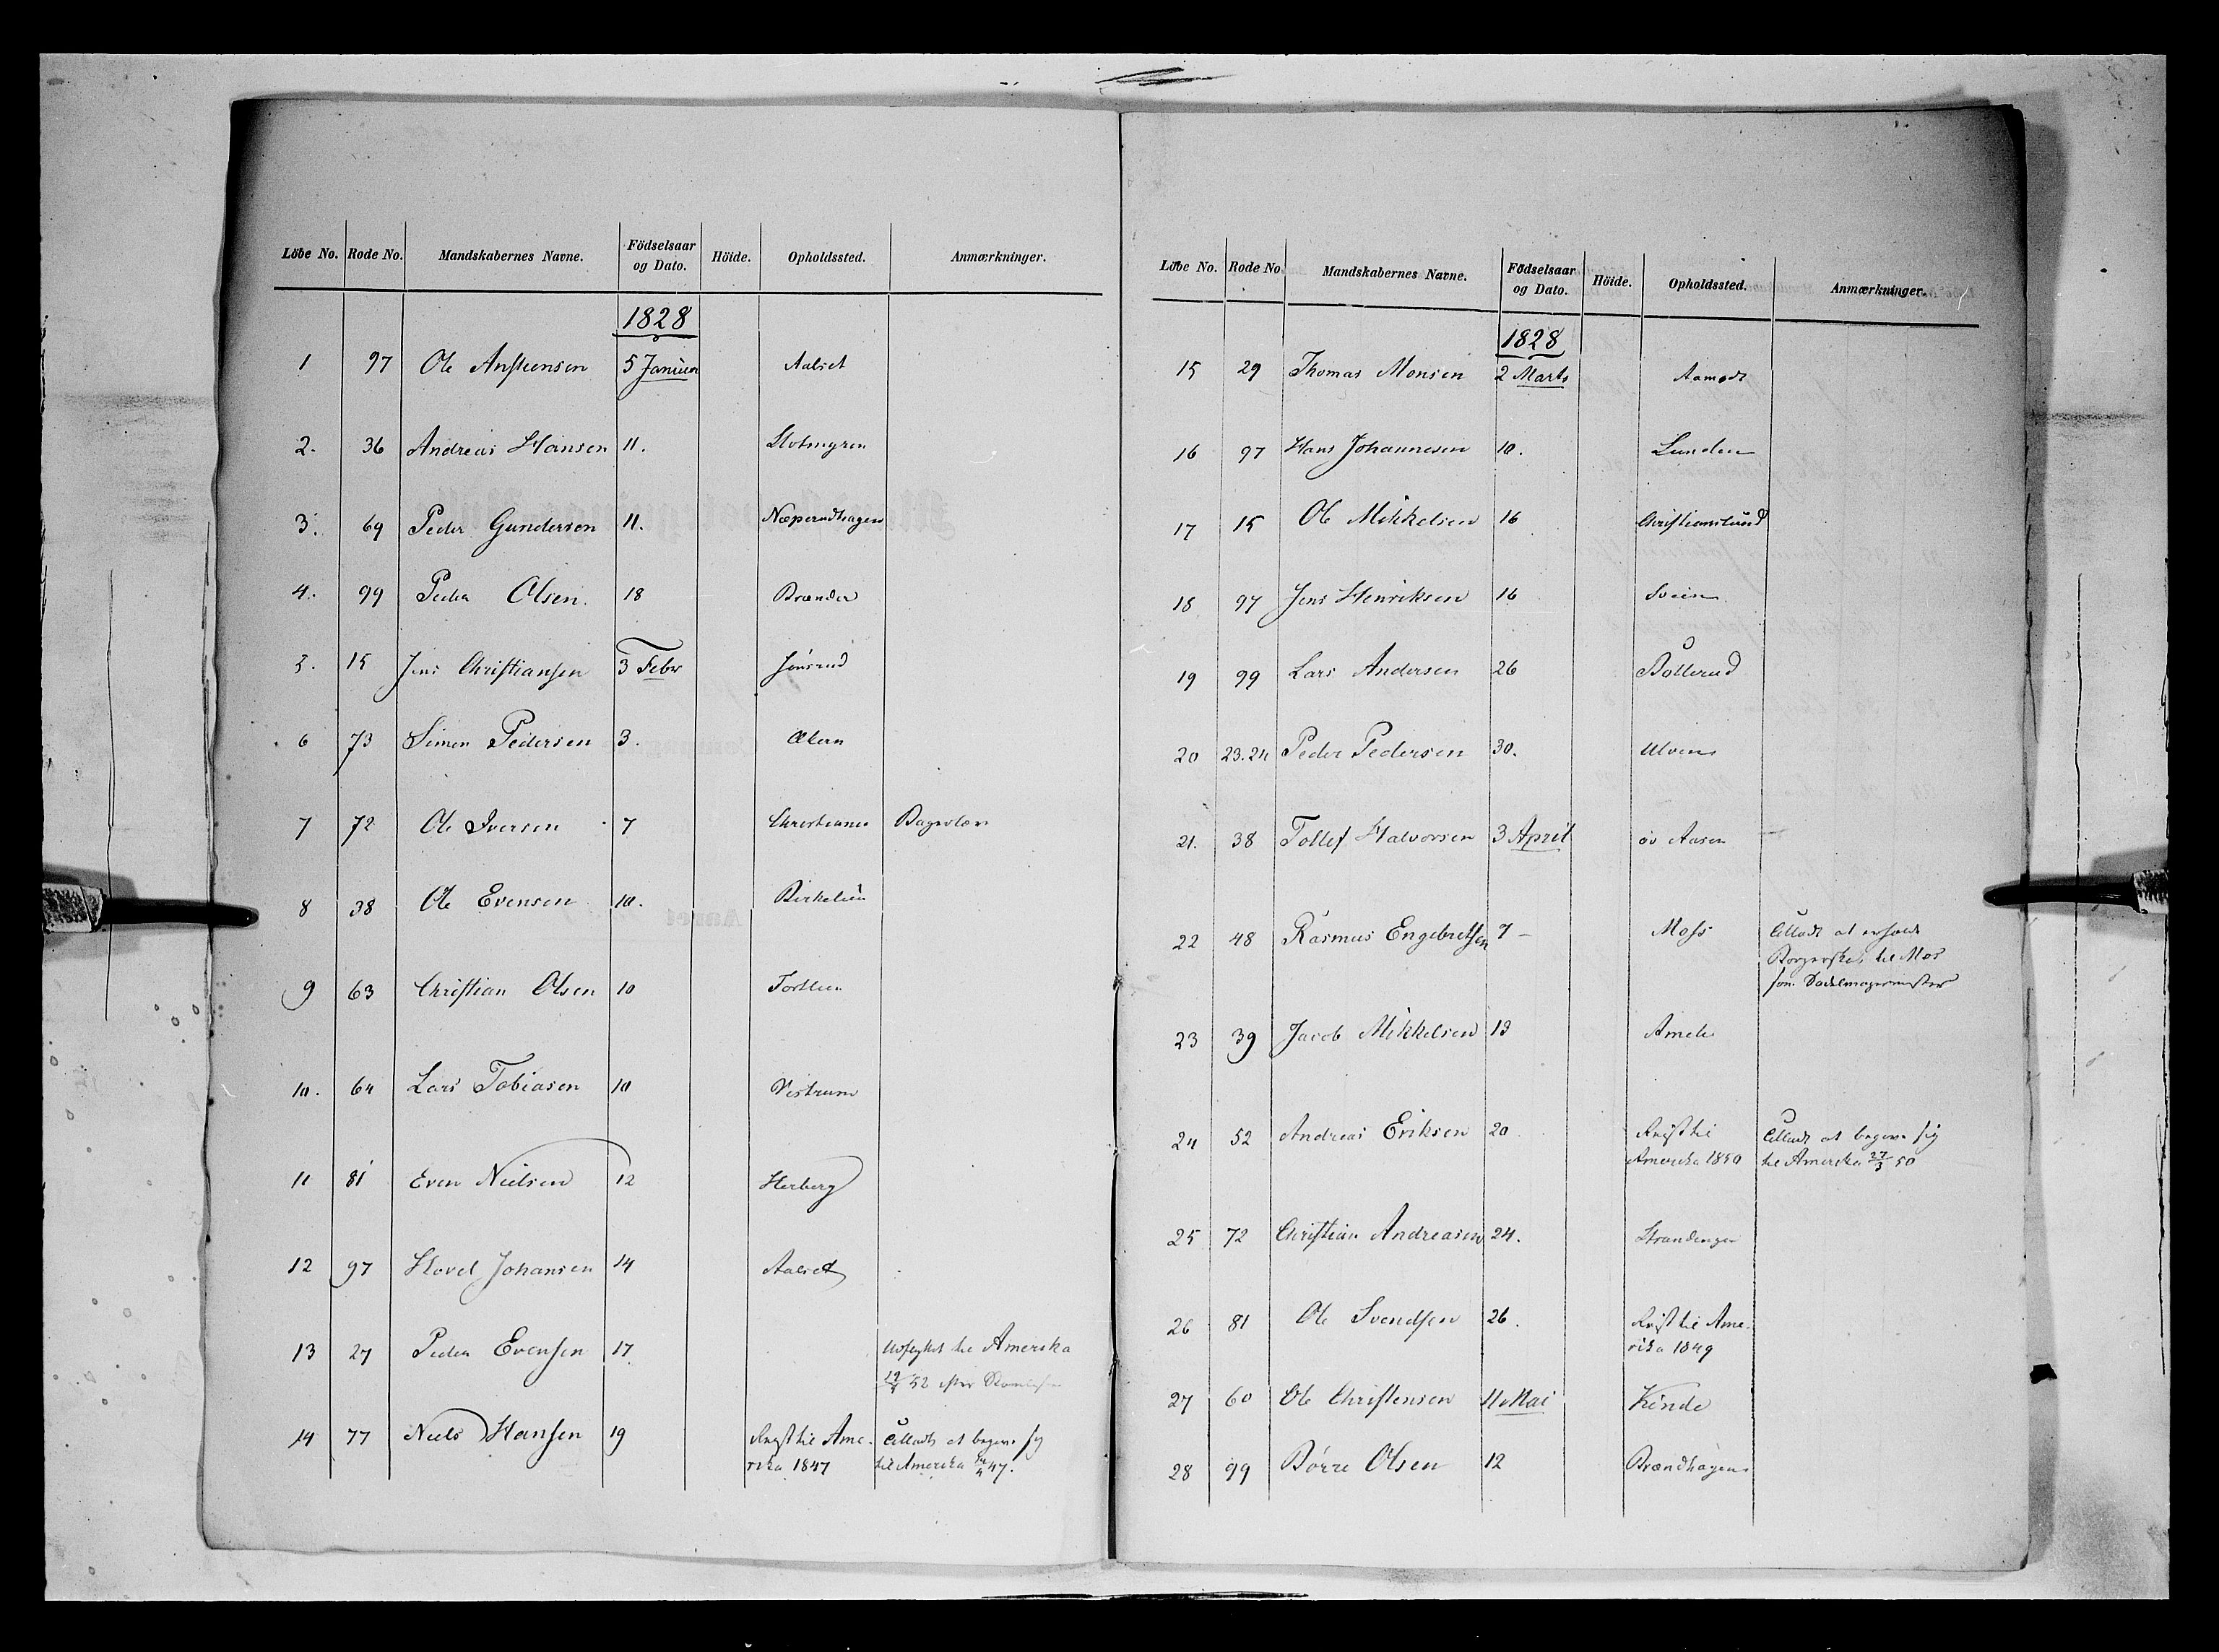 Löbe No. Rode No. Mandskabernes Navne. Födselsaar og Dato. Höide. Opholdssted. Anmærkninger.
1828
1 97 Ole Anstensen 5 Januar Aalset
2. 36 Andreas Hansen 11. Slotmyren
3. 69 Peder Gundersen 11. Næperudhagen
4. 99 Peder Olsen. 18 Brænder
5. 15 Jens Christiansen 3 Febr Jonsrud
6 73 Simen Pedersen 3. Økern
7 72 Ole Iversen 7 Christiania
8 38 Ole Evensen 10. Birkelien
9 63 Christian Olsen 10
10. 64 Lars Tobiasen 10 Vestrum
11 81 Even Nielsen 12 Herberg
12 97 Hovel Johansen 14 Aalset
13 27 Peder Evensen 17 til Amerika
52 efter
14 77 Niels Hansen 19 Reist til Ame- Tilladt at begive sig
rika 1847 til Amerika 47.
Löbe No. Rode No Mandskabernes Navne. Födselsaar og Dato. Höide. Opholdssted. Anmærkninger.
1828
15 29 Thomas Monsen 2 Marts Aamodt
16 97 Hans Johannesen 10. Lunden
17 15 Ole Mikkelsen 16 Christianslund
18 97 Jens Henriksen 16 Sveen
19 99 Lars Andersen 26 Bollerud
20 23.24 Peder Pedersen 30. Ulven
21. 38 Tollef Halvorsen 3 April öv Aasen
22 48 Rasmus Engebretsen 7 - Moss Tilladt at erholde
Borgerskab til Mos
som Sadelmagermester
23 39 Jacob Mikkelsen 13
24 52 Andreas Eriksen 20 Reist til Tilladt at begive sig
Amerika 1850 til Amerika 27/3 50
25 72 Christian Andreasen 24. Strandengen
26 81 Ole Svendsen 26. Reist til Ame-
rika 1849
27 60 Ole Christensen 11 Mai Kinde
28 99 Börre Olsen 12 Brændhagen